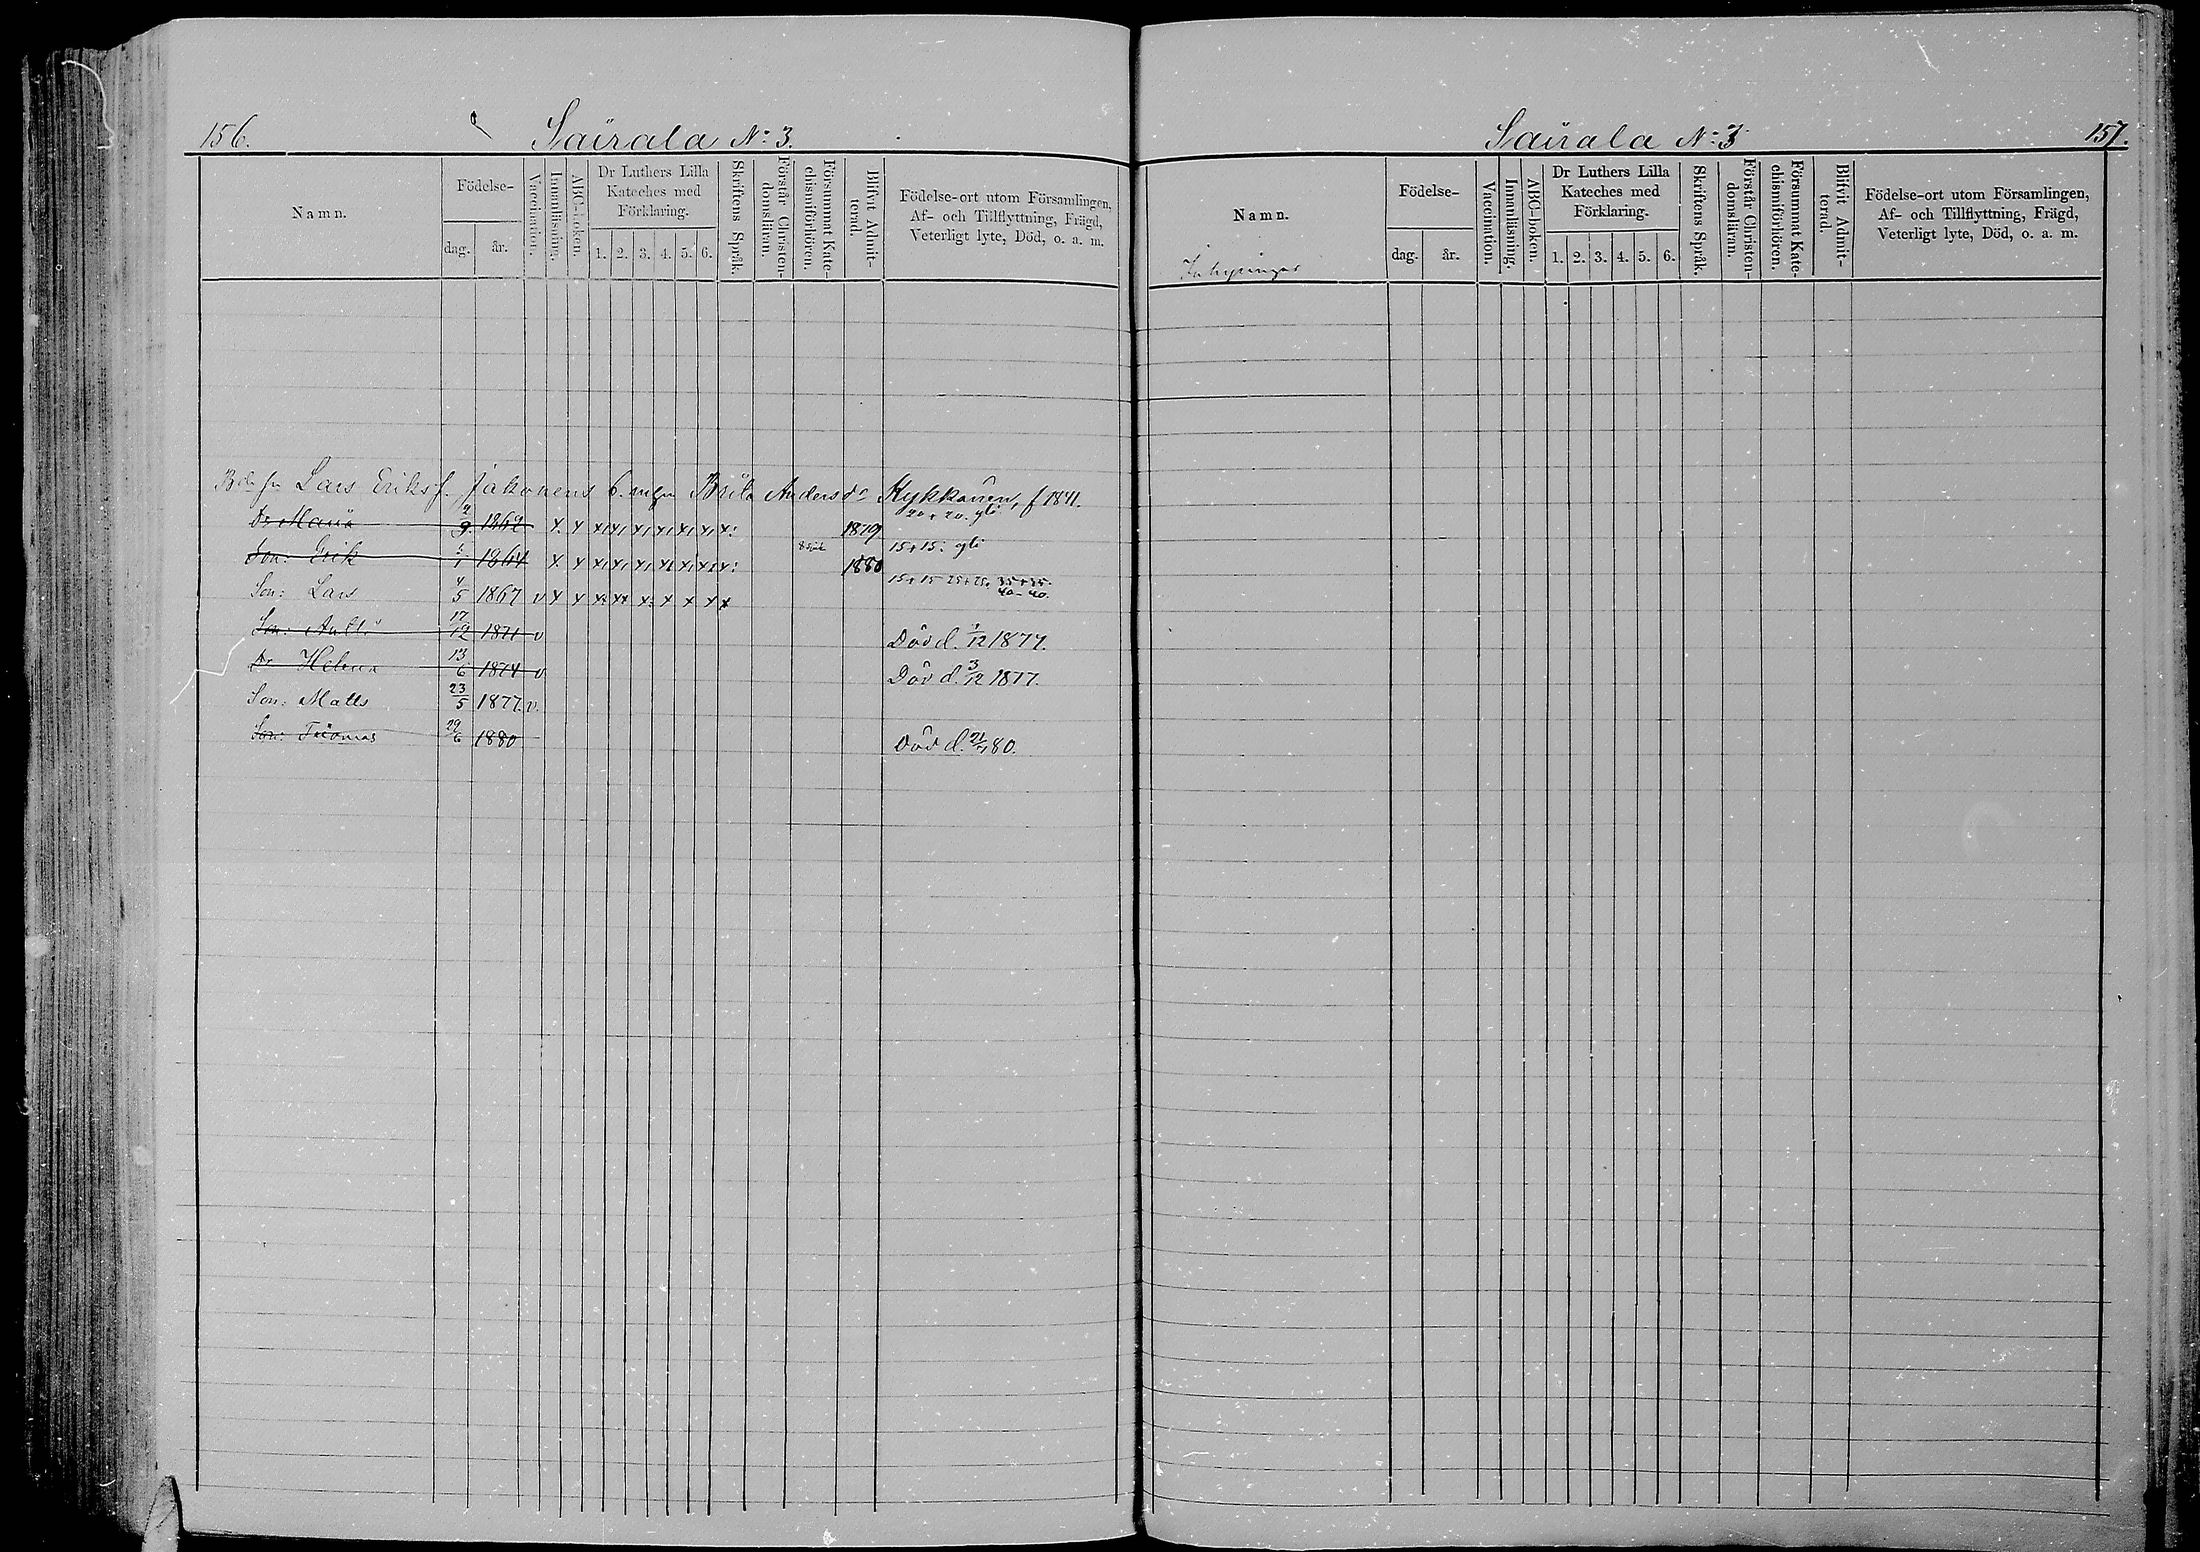 156.
Sairala No: 3.
Namn.
Födelse-
dag.
år.
Vaccination.
Innanläsning.
ABC-boken.
Dr Luthers Lilla
Kateches med
Förklaring.
1. 2. 3. 4. 5. 6.
Skriftens Språk.
Förstår Christen-
domsläran.
Försummat Kate-
chismiförhören.
Blifvit Admit-
terad.
Födelse-ort utom Församlingen,
Af- och Tillflyttning, Frägd,
Veterligt lyte, Död, o. a. m.
Lars Eriksf. Jakonens Brita Andersdr Kykkänen, f 1841.
Dr Maria 9 1862 x. x 1879 20 + 20. gli
Son: Erik 1 1864 x x 1880 15+15: gli
Son: Lars 4/5 1867 v x x 15+15 25+25, 35+35.
40-40.
Son: Antti 17/12 1871 v Död d. 1/12 1877.
Dr Helena 13/6 1874 v Död d. 3/12 1877.
Son: Matts 23/5 1877. v.
Son: Thomas 29/6 1880 Död d. 21/7 80.
Sairala No: 3
157.
Namn.
Födelse-
dag.
år.
Vaccination.
Innanläsning.
ABC-boken.
Dr Luthers Lilla
Kateches med
Förklaring.
1. 2. 3. 4. 5. 6.
Skriftens Språk.
Förstår Christen-
domsläran.
Försummat Kate-
chismiförhören.
Blifvit Admit-
terad.
Födelse-ort utom Församlingen,
Af- och Tillflyttning, Frägd,
Veterligt lyte, Död, o. a. m.
Inhysingar